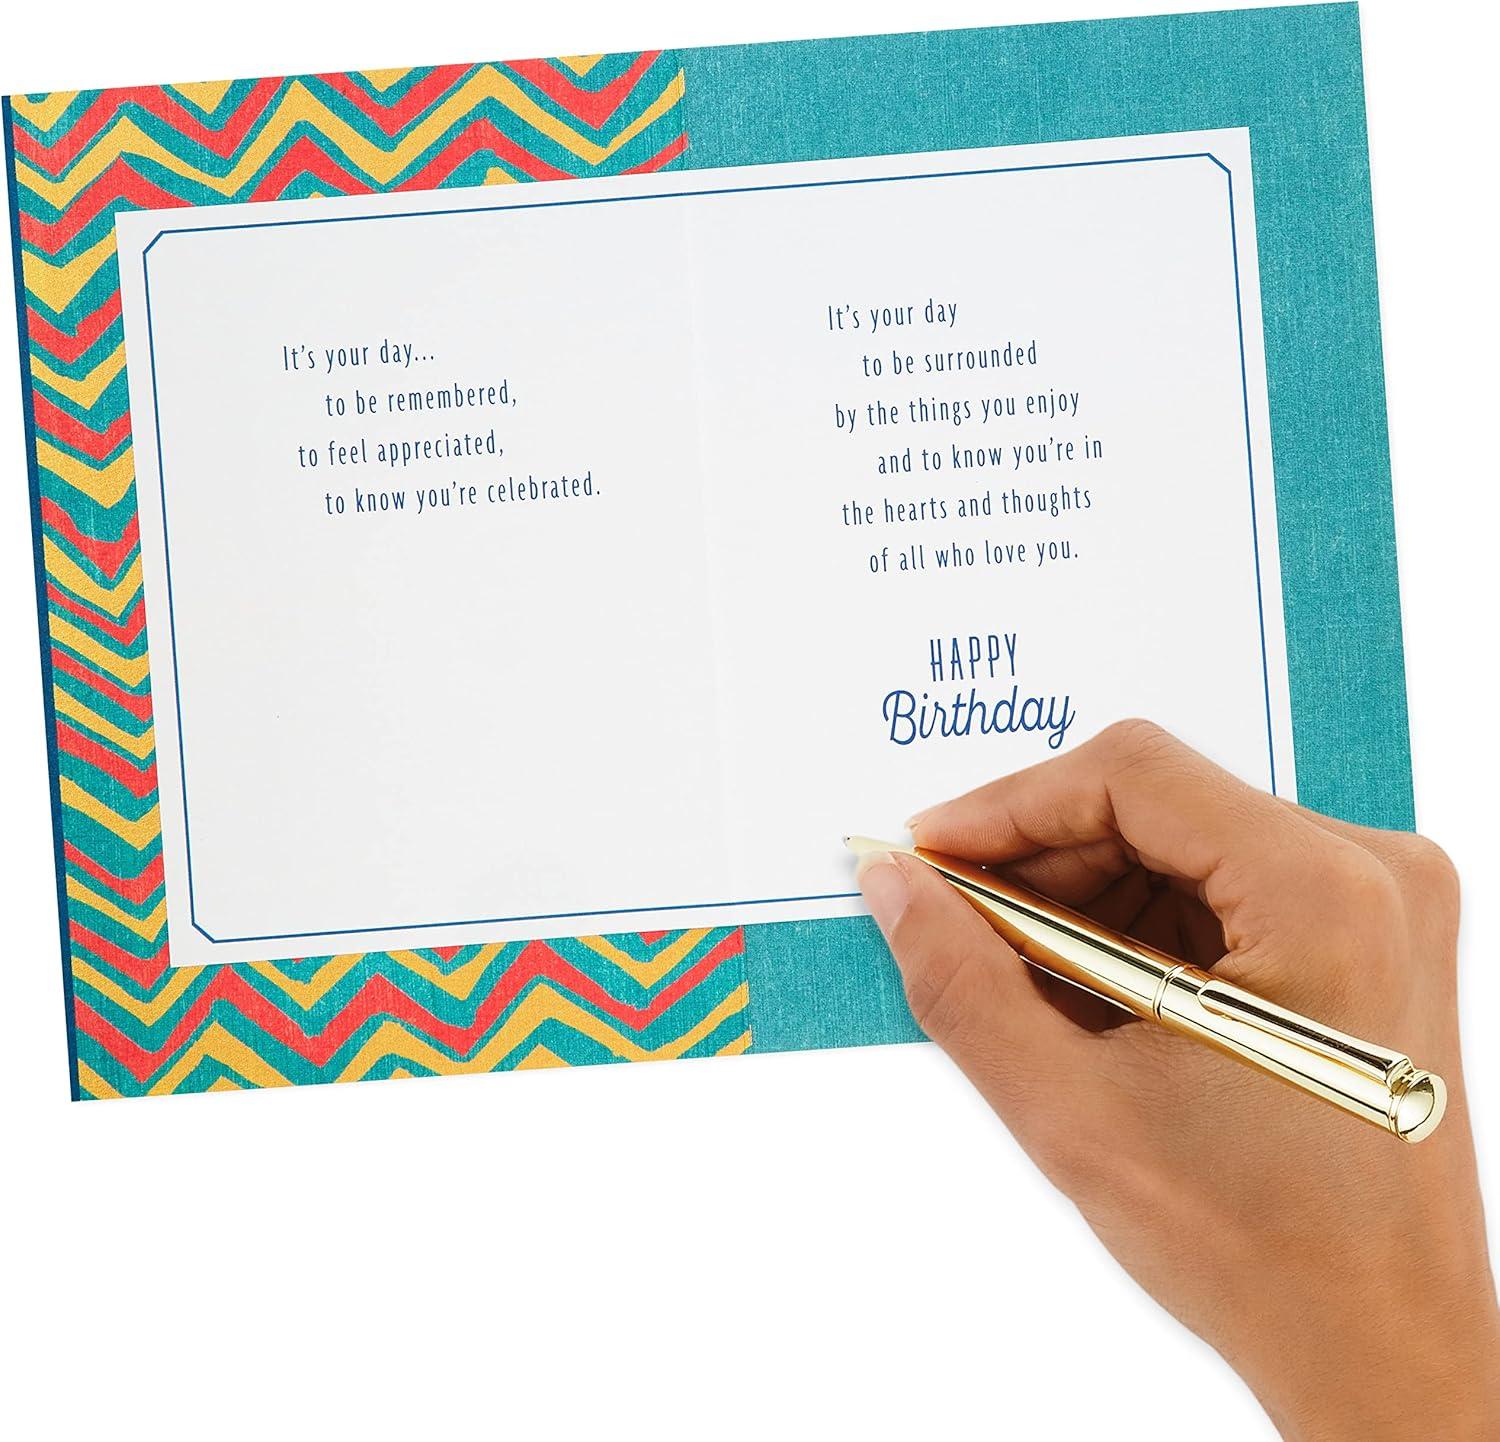 It's your day...
to be remembered,
to feel appreciated,
to know you're celebrated.
It's your day
to be surrounded
by the things you enjoy
and to know you're in
the hearts and thoughts
of all who love you.
HAPPY
Birthday